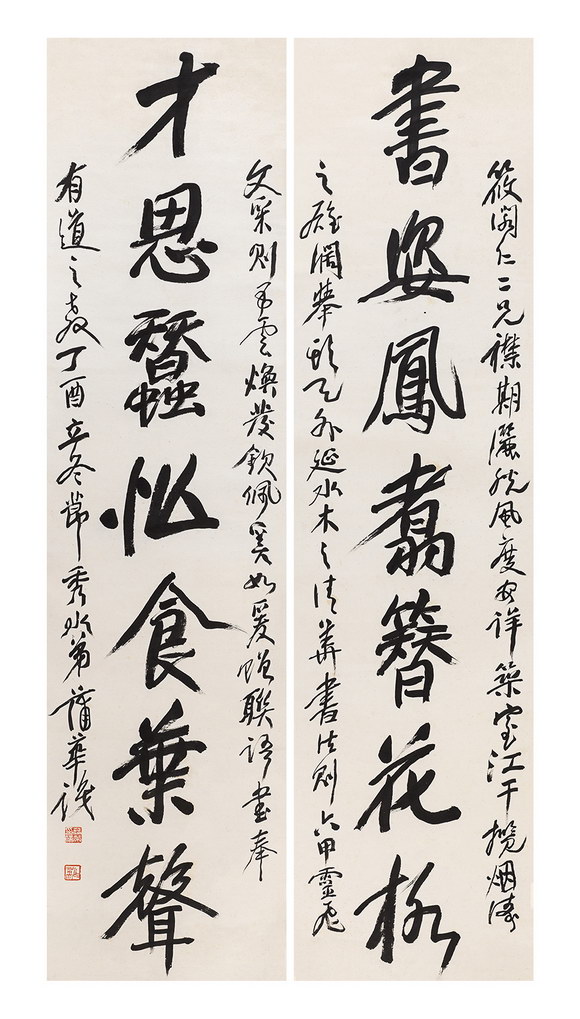 筱閣仁二兄襟期灑脫風度安詳築室江干攬烟濤
書姿鳳翥簪花格
之雄濶舉頭天外延水木之清華書法則六甲靈飛
文采則五雲煥發欽佩奚如爰贈聯語書奉
才思蠶忙食葉聲
有道之教丁酉立冬節秀水弟蒲華識